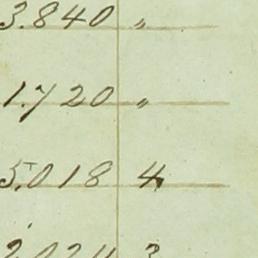 3.840 "
1.720 "
5.018 4